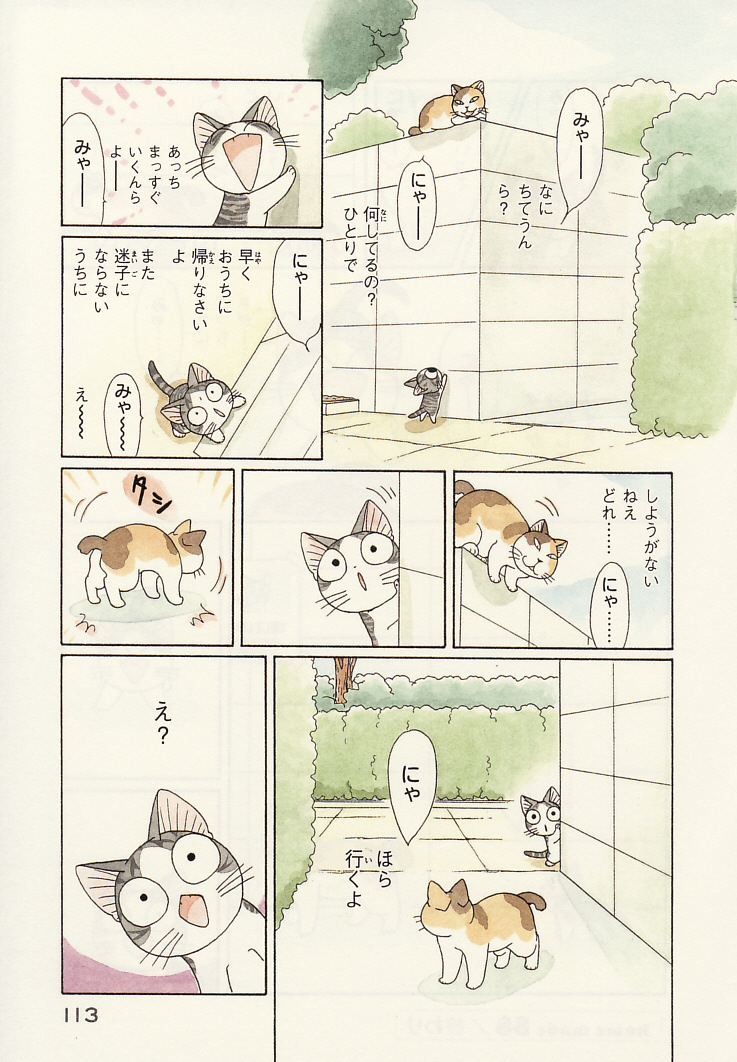 みゃー
なに
ちてうん
ら？
にゃー
何してるの？
ひとりで
あっち
まっすぐ
いくんら
よー
みゃー
にゃー
早く
おうちに
帰りなさい
よ
また
迷子に
ならない
うちに
みゃ〜〜
え〜〜〜
しようがない
ねえ
どれ……
にゃ……
タシ
にゃ
ほら
行くよ
え？
113